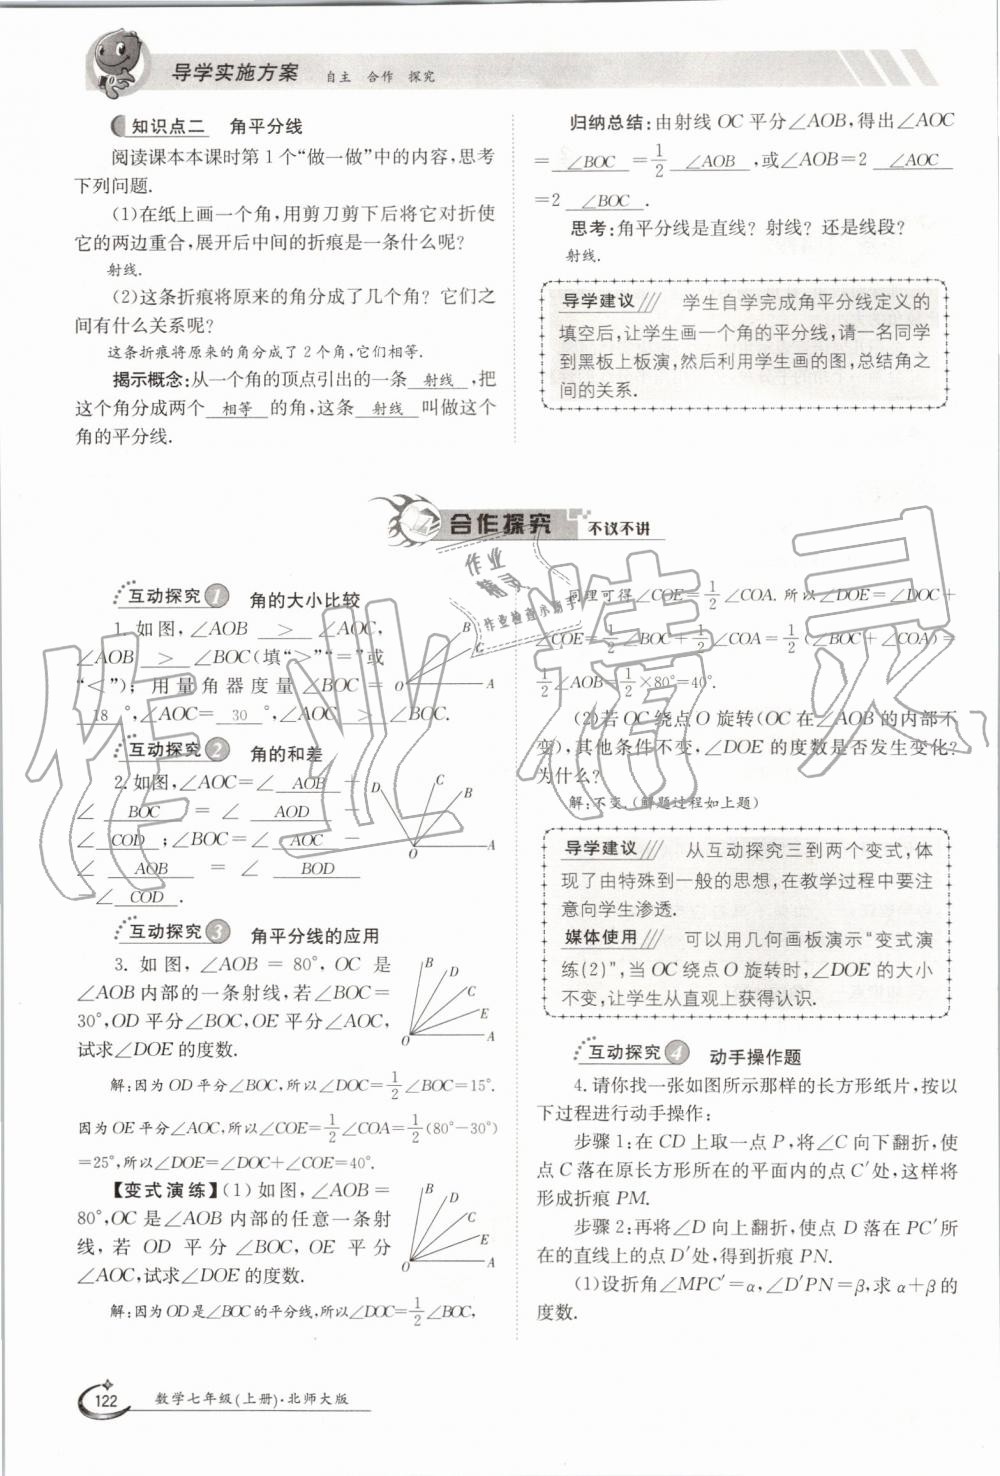 导学实施方案 自主 合作 探究
知识点二 角平分线
阅读课本本课时第1个“做一做”中的内容,思考
下列问题.
(1)在纸上画一个角,用剪刀剪下后将它对折使
它的两边重合,展开后中间的折痕是一条什么呢?
射线.
(2)这条折痕将原来的角分成了几个角? 它们之
间有什么关系呢?
这条折痕将原来的角分成了2个角,它们相等.
揭示概念:从一个角的顶点引出的一条 射线 ,把
这个角分成两个 相等 的角,这条 射线 叫做这个
角的平分线.
归纳总结:由射线OC平分∠AOB,得出∠AOC
= ∠BOC =1/2 ∠AOB ,或∠AOB=2 ∠AOC
=2 ∠BOC .
思考:角平分线是直线? 射线? 还是线段?
射线.
导学建议 学生自学完成角平分线定义的
填空后,让学生画一个角的平分线,请一名同学
到黑板上板演,然后利用学生画的图,总结角之
间的关系.
合作探究 不议不讲
互动探究1 角的大小比较
1.如图,∠AOB > ∠AOC,
∠AOB > ∠BOC(填“>”“=”或
“<”);用量角器度量∠BOC=
18 °,∠AOC= 30 °,∠AOC > ∠BOC.
B
C
O
A
互动探究2 角的和差
2.如图,∠AOC=∠ AOB +
∠ BOC =∠ AOD -
∠ COD ;∠BOC=∠ AOC -
∠ AOB =∠ BOD -
∠ COD .
D
C
B
O
A
互动探究3 角平分线的应用
3.如图,∠AOB=80°,OC是
∠AOB内部的一条射线,若∠BOC=
30°,OD平分∠BOC,OE平分∠AOC,
试求∠DOE的度数.
B
D
C
E
O
A
解:因为OD平分∠BOC,所以∠DOC=1/2∠BOC=15°.
因为OE平分∠AOC,所以∠COE=1/2∠COA=1/2(80°-30°)
=25°,所以∠DOE=∠DOC+∠COE=40°.
【变式演练】(1)如图,∠AOB=
80°,OC是∠AOB内部的任意一条射
线,若OD平分∠BOC,OE平分
∠AOC,试求∠DOE的度数.
B
D
C
E
O
A
解:因为OD是∠BOC的平分线,所以∠DOC=1/2∠BOC,
同理可得∠COE=1/2∠COA.所以∠DOE=∠DOC+
∠COE=1/2∠BOC+1/2∠COA=1/2(∠BOC+∠COA)=
1/2∠AOB=1/2×80°=40°.
(2)若OC绕点O旋转(OC在∠AOB的内部不
变),其他条件不变,∠DOE的度数是否发生变化?
为什么?
解:不变.(解题过程如上题)
导学建议 从互动探究三到两个变式,体
现了由特殊到一般的思想,在教学过程中要注
意向学生渗透.
媒体使用 可以用几何画板演示“变式演
练(2)”,当OC绕点O旋转时,∠DOE的大小
不变,让学生从直观上获得认识.
互动探究4 动手操作题
4.请你找一张如图所示那样的长方形纸片,按以
下过程进行动手操作:
步骤1:在CD上取一点P,将∠C向下翻折,使
点C落在原长方形所在的平面内的点C′处,这样将
形成折痕PM.
步骤2:再将∠D向上翻折,使点D落在PC′所
在的直线上的点D′处,得到折痕PN.
(1)设折角∠MPC′=α,∠D′PN=β,求α+β的
度数.
122 数学七年级(上册)·北师大版
作业精灵
作业
精灵
作业检查小助手